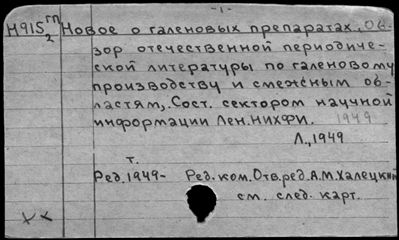 -1-
Н915 гп Новое о галеновых препаратах. Об-
2
зор отечественной периодиче-
ской литературы по галеновому
производству и смежным об-
ластям. Сост. сектором научной
информации Лен.НИХФИ. 1949
Л., 1949
т.
Ред.1949- Ред.ком.Отв.ред.А.М Халецкий
см. след. карт.